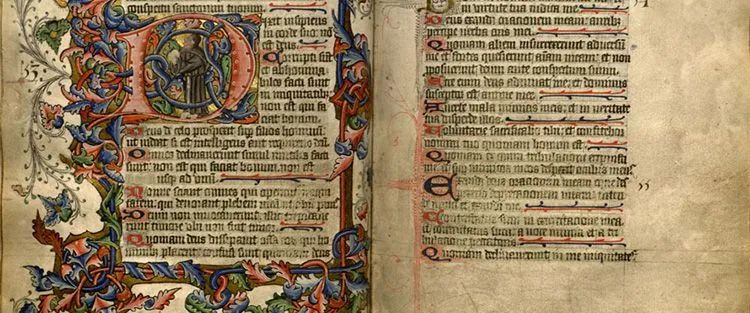 conspectu sanctorum
D ixit insipiens
in corde suo: no
est deus
Corrupti sunt
et abhomina
biles facti sunt
in iniquitatib;
non est qui fa
ciat bonum
Deus de celo prospexit sup filios hominu
ut videat si est intelligens aut requirens deu
Omnes declinaverunt simul inutiles facti
sunt: non est qui faciat bonum non est
usq; ad unum
Nonne scient omnes qui operantur iniqui
tatem: qui devorant plebem meam
Deum non invocaverunt: illic trepidave
runt timore ubi non fuit timor
Quoniam deus dissipavit ossa qui ho
minibus placent: confusi sunt quoniam deus
virtute tua iudica me
Deus exaudi oracionem meam: auribus
percipe verba oris mei
Quoniam alieni insurrexerunt adversu
me et fortes quesierunt animam meam: et non
proposuerunt deum ante conspectum suum
deus adiuvat me: et dominus
susceptor est anime mee
Averte mala inimicis meis: et in veritate
tua disperde illos
Voluntarie sacrificabo tibi: et confitebor
nomini tuo quoniam bonum est
Quoniam ex omni tribulatione eripuisti
me: et super inimicos meos despexit oculus meus
Exaudi deus oracionem meam et ne des
pexeris deprecationem meam: intende
michi et exaudi me
Contristatus sum in exercitacione mea
et conturbatus sum: a voce inimici et a tri
bulacione peccatoris
Quoniam declinaverunt in me iniquitates